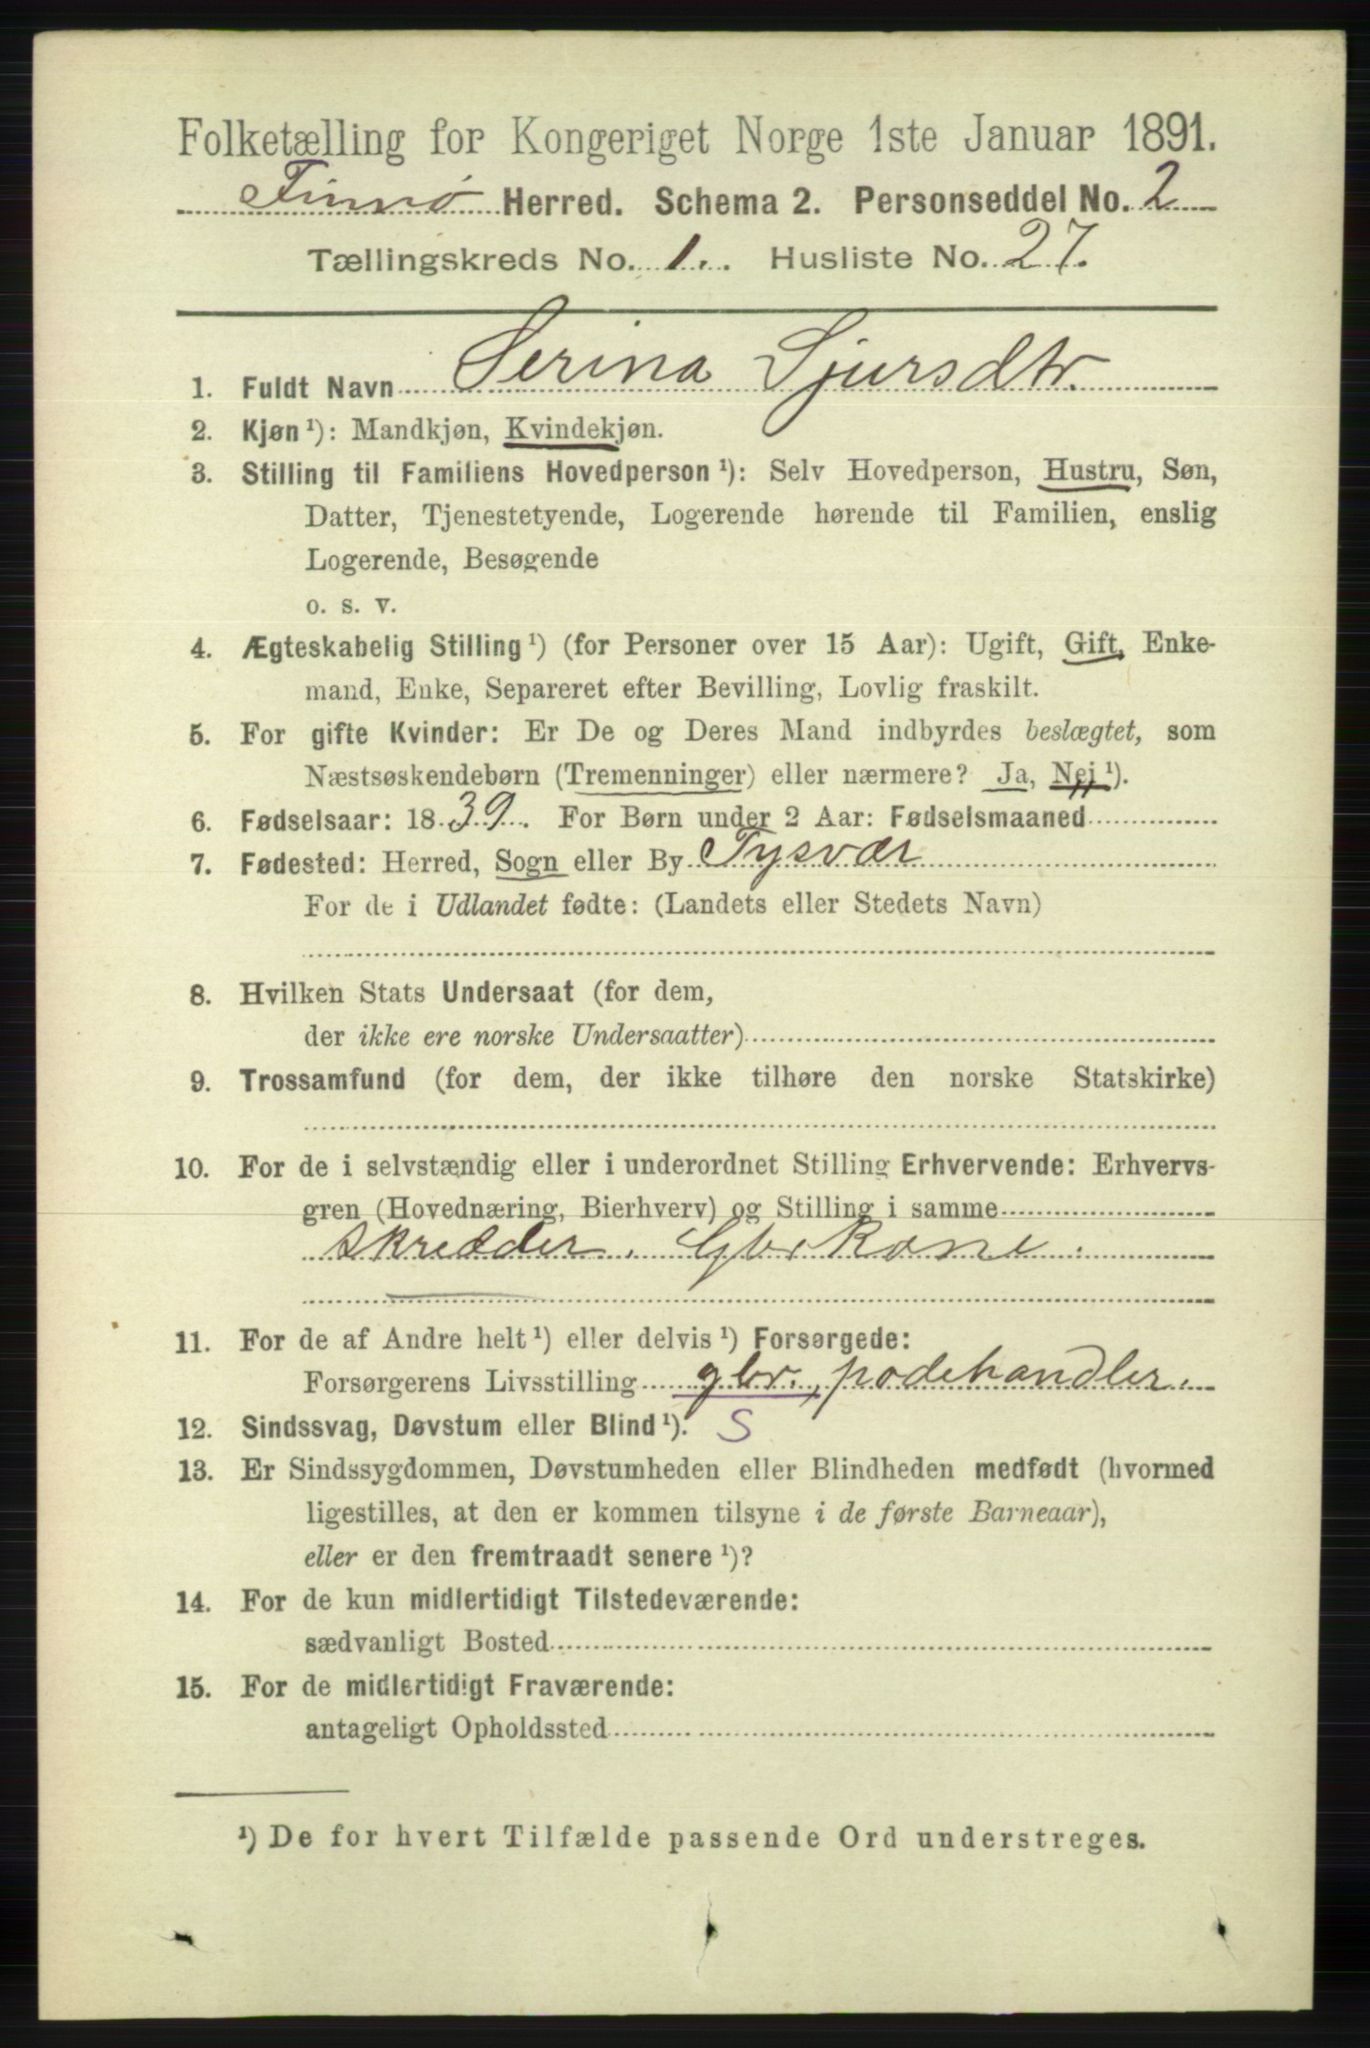 Folketælling for Kongeriget Norge 1ste Januar 1891.
Finnö Herred. Schema 2. Personseddel No. 2
Tællingskreds No. 1. Husliste No. 27.
1. Fuldt Navn Serina Sjursdtr.
2. Kjøn ¹): Mandkjøn, Kvindekjøn.
3. Stilling til Familiens Hovedperson ¹): Selv Hovedperson, Hustru, Søn,
Datter, Tjenestetyende, Logerende hørende til Familien, enslig
Logerende, Besøgende
o. s. v.
4. Ægteskabelig Stilling ¹) (for Personer over 15 Aar): Ugift, Gift, Enke-
mand, Enke, Separeret efter Bevilling, Lovlig fraskilt.
5. For gifte Kvinder: Er De og Deres Mand indbyrdes beslægtet, som
Næstsøskendebørn (Tremenninger) eller nærmere? Ja, Nei ¹).
6. Fødselsaar: 1839. For Børn under 2 Aar: Fødselsmaaned
7. Fødested: Herred, Sogn eller By Tysvær
For de i Udlandet fødte: (Landets eller Stedets Navn)
8. Hvilken Stats Undersaat (for dem,
der ikke ere norske Undersaatter)
9. Trossamfund (for dem, der ikke tilhøre den norske Statskirke)
10. For de i selvstændig eller i underordnet Stilling Erhvervende: Erhvervs-
gren (Hovednæring, Bierhverv) og Stilling i samme
skredder. Gbr kone.
11. For de af Andre helt ¹) eller delvis ¹) Forsørgede:
Forsørgerens Livsstilling gbr., podehandler.
12. Sindssvag, Døvstum eller Blind ¹). S
13. Er Sindssygdommen, Døvstumheden eller Blindheden medfødt (hvormed
ligestilles, at den er kommen tilsyne i de første Barneaar),
eller er den fremtraadt senere ¹)?
14. For de kun midlertidigt Tilstedeværende:
sædvanligt Bosted
15. For de midlertidigt Fraværende:
antageligt Opholdssted
¹) De for hvert Tilfælde passende Ord understreges.